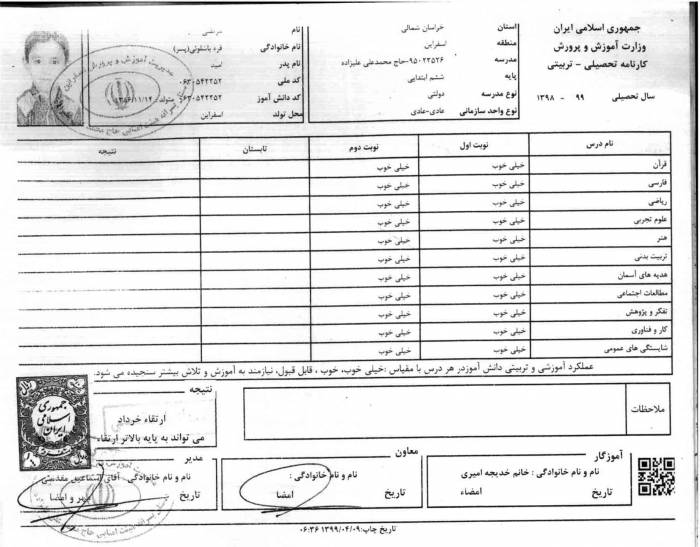 جمهوری اسلامی ایران
وزارت آموزش و پرورش
کارنامه تحصیلی - تربیتی
سال تحصیلی ۹۹ - ۱۳۹۸
استان خراسان شمالی
منطقه اسفراین
مدرسه ۹۵۰۲۳۵۲۶-حاج محمدعلی علیزاده
پایه ششم ابتدایی
نوع مدرسه دولتی
نوع واحد سازمانی عادی-عادی
نام مرتضی
نام خانوادگی قره باشلوئی(پسر)
نام پدر امید
کد ملی ۰۶۳۰۵۴۲۲۵۲
کد دانش آموز ۰۶۳۰۵۴۲۲۵۲ متولد:
محل تولد اسفراین
نام درس نوبت اول نوبت دوم تابستان نتیجه
قرآن خیلی خوب خیلی خوب
فارسی خیلی خوب خیلی خوب
ریاضی خیلی خوب خیلی خوب
علوم تجربی خیلی خوب خیلی خوب
هنر خیلی خوب خیلی خوب
تربیت بدنی خیلی خوب خیلی خوب
هدیه های آسمان خیلی خوب خیلی خوب
مطالعات اجتماعی خیلی خوب خیلی خوب
تفکر و پژوهش خیلی خوب خیلی خوب
کار و فناوری خیلی خوب خیلی خوب
شایستگی های عمومی خیلی خوب خیلی خوب
عملکرد آموزشی و تربیتی دانش آموزدر هر درس با مقیاس :خیلی خوب، خوب ، قابل قبول، نیازمند به آموزش و تلاش بیشتر سنجیده می شود.
ملاحظات
نتیجه
ارتقاء خرداد
می تواند به پایه بالاتر ارتقاء
جمهوری
اسلامی
ایران
آموزگار
نام و نام خانوادگی : خانم خدیجه امیری
تاریخ امضاء
معاون
نام و نام خانوادگی :
تاریخ امضا
مدیر
نام و نام خانوادگی: آقای اسماعیل مقدسی
تاریخ مهر و امضا
تاریخ چاپ:۱۳۹۹/۰۴/۰۹ ۰۶:۳۶